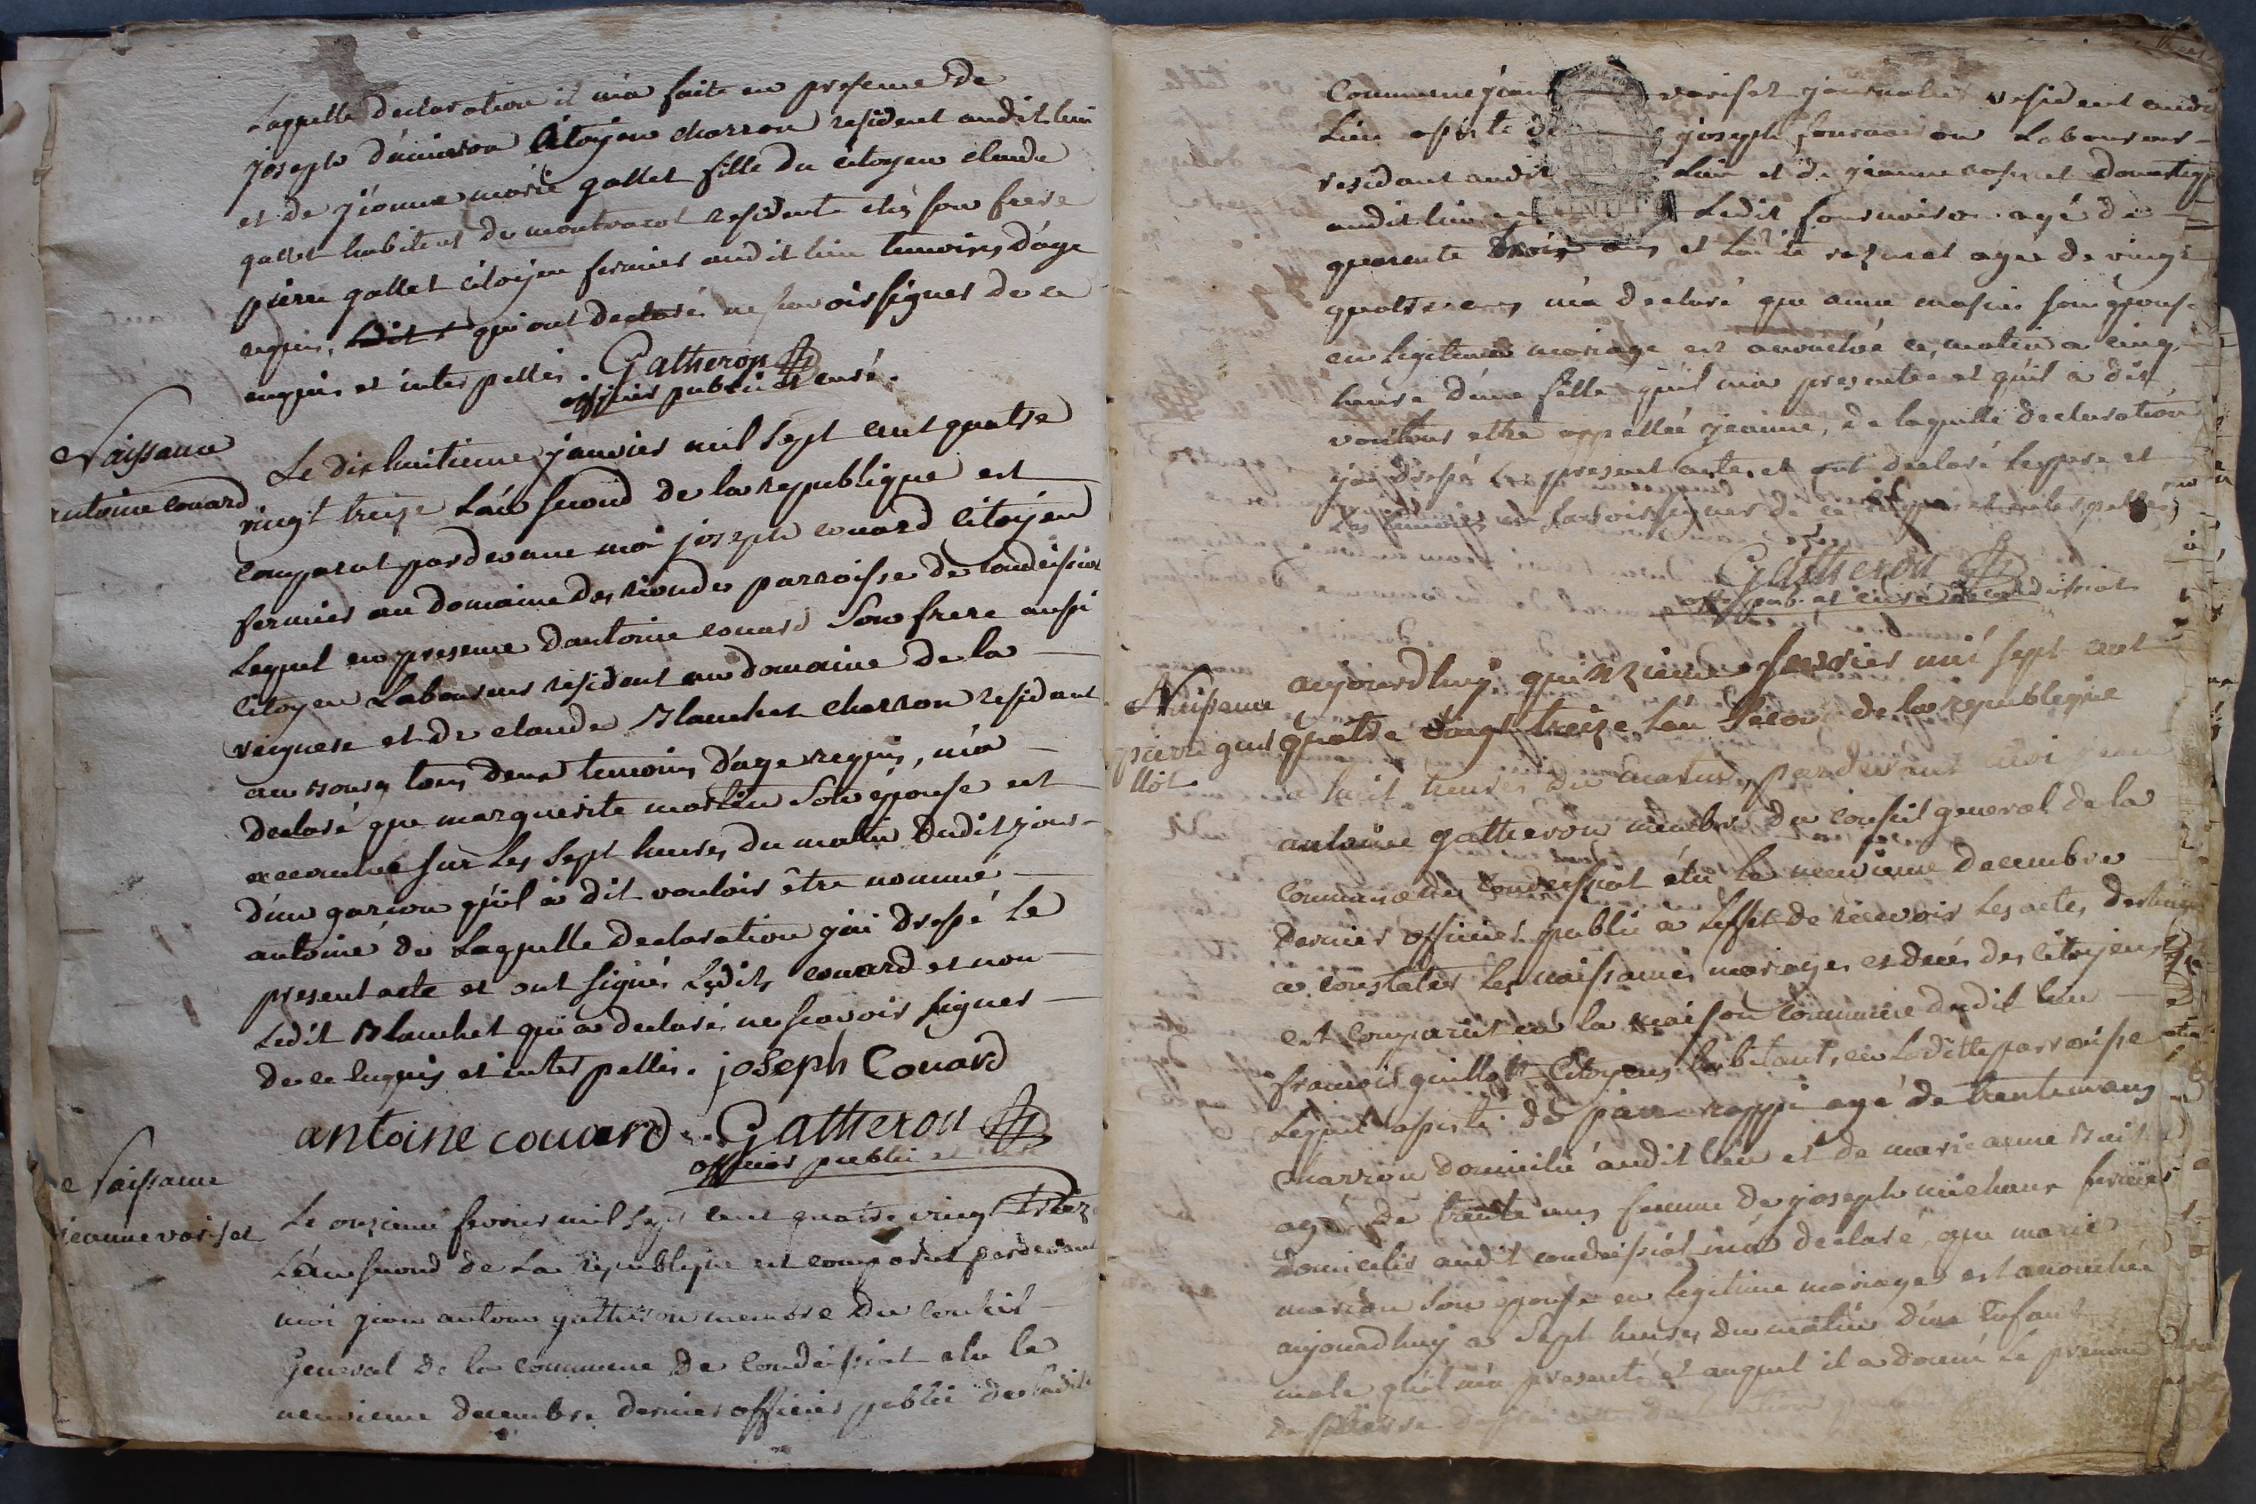 Laquelle declaration il m'a faite en presence de
joseph d'unieson Citoyen charron resident audit lieu
et de jeanne marie gallet fille du citoyen claude
gallet habitant de montracol residente chés son frere
pierre gallet citoyen fermier audit lieu temoins d'age
requis, qui ont declaré ne scavoir signer de ce
enquis et interpellés. Gatheron
officier public et curé.
Naissance
antoine couard
Le dix huitieme janvier mil sept cent quatre
vingt treize L'an second de la republique est
comparut pardevant moi joseph couard Citoyen
fermier au domaine des riondes parroisse de Condeissiat
Lequel en presence d'antoine couard Son frere aussi
Citoyen Laboureur resident au domaine de la
veignere et de claude Blanchet charron resident
au tous deux temoins d'age requis, m'a
declaré que marguerite martin Son épouse est
accouchée sur Les Sept heures du matin dudit jour
d'un garcon qu'il a dit vouloir être nommé
antoine de Laquelle declaration j'ai dressé Le
present acte et ont signés Lesdits couard et non
Ledit Blanchet qui a declaré ne scavoir signer
de ce enquis et interpellés. joseph Couard
antoine couard Gatheron
officier public et
Naissance
jeanne variset
Le onzieme fevrier mil sept cent quatre vingt treize
L'an second de La republique est comparut pardevant
moi jean antoine gatheron membre du Conseil
General de la commune de Condeissiat elu le
neuvieme decembre dernier officier public de ladite
Commune jean variset journalier resident audit
Lieu assisté de joseph fournaison Laboureur
residant audit Lieu et de jeanne domestique
audit lieu Ledit fournaison agé de
quarente trois ans et Ladite agée de vingt
quatre ans m'a declaré que anne son épouse
en legitime mariage est accouchée ce matin a cinq
heure d'une fille qu'il m'a presentée et qu'il a dit
vouloir etre appellée jeanne, de laquelle declaration
j'ai dressé Le present acte, et ont declaré Le pere et
Les temoins ne scavoir signer de ce enquis et interpellés
Gatheron
off. pub. et curé de condeissiat
Naissance
pierre guillot
aujourdhuy quinzieme fevrier mil sept cent
quatre vingt treize L'an Second de la republique
a huit heures du matin pardevant moi jean
antoine gatheron membre du conseil general de la
Commune de Condeissiat élu le neuvieme decembre
dernier officier public a L'effet de recevoir Les actes destinés
a constater Les naissances mariages et decés des citoyens
est comparut en la maison commune dudit lieu
francois guillot Citoyen habitant en Laditte parroisse
Lequel assisté de pierre rappi agé de trente ans
charron domicilié audit lieu et de marie anne
agée de trente ans femme de joseph michaux fermier
domiciliés audit condeissiat m'a declaré que marie
marion Son épouse en legitime mariage est accouchée
aujourdhuy a Sept heures du matin d'un enfant
male qu'il m'a presenté et auquel il a donné le prenom
de pierre